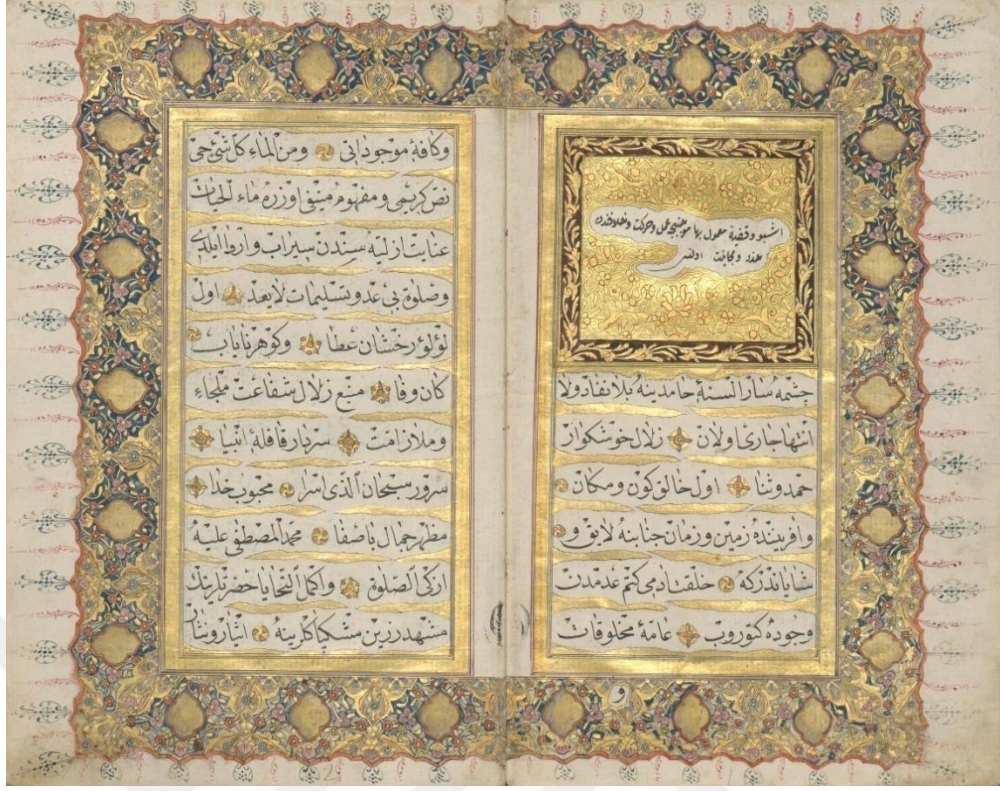 اشبو وقفیۀ معمول بها موجبنجه عمل وحرکت وخلافندن
حذر ومجانبت اولنه
چشمه سار السنۀ حامدینه بلا نفاد ولا
انتها جاری اولان زلال خوشکوار
حمد وثنا اول خالق کون ومکان
وآفرینندۀ زمین وزمان جنابنه لایق و
شایاندرکه خلقت آدمی کتم عدمدن
وجوده کتوروب عامۀ مخلوقات
وکافۀ موجوداتی ومن الماء کل شئ حی
نص کریمی ومفهوم منیفی اوزره ماء الحیات
عنایت ازلیه سندن سیراب واروا ایلدی
وصلوة بی عد وتسلیمات لا یعد اول
لؤلؤ رخشان عطا وکوهر نایاب
کان وفا منبع زلال شفاعت ملجاء
وملاذ امت سربار قافلۀ انبیا
سرور سبحان الذی اسرا محبوب خدا
مظهر جمال باصفا محمد المصطفی علیه
ازکی الصلوة واکمل التحایا حضرتلرینک
مشهد رزین مشکپاکلرینه ایثار ونثار